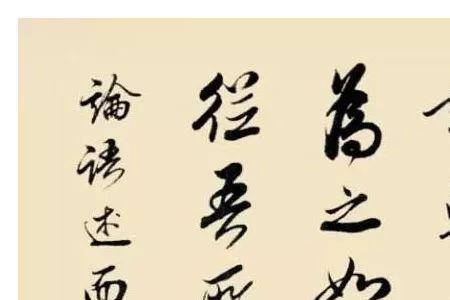 為之如
從吾所
論語述而